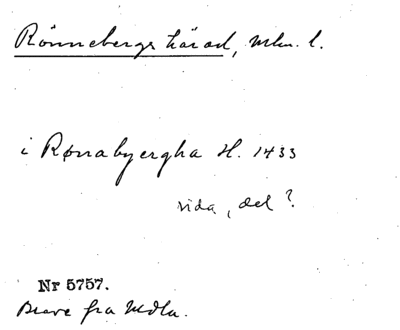 Rönnebergs härad, Mlm. l.
i Rønabyergha H. 1433
vida, del ?
Nr 5757.
Breve fra Mdln.